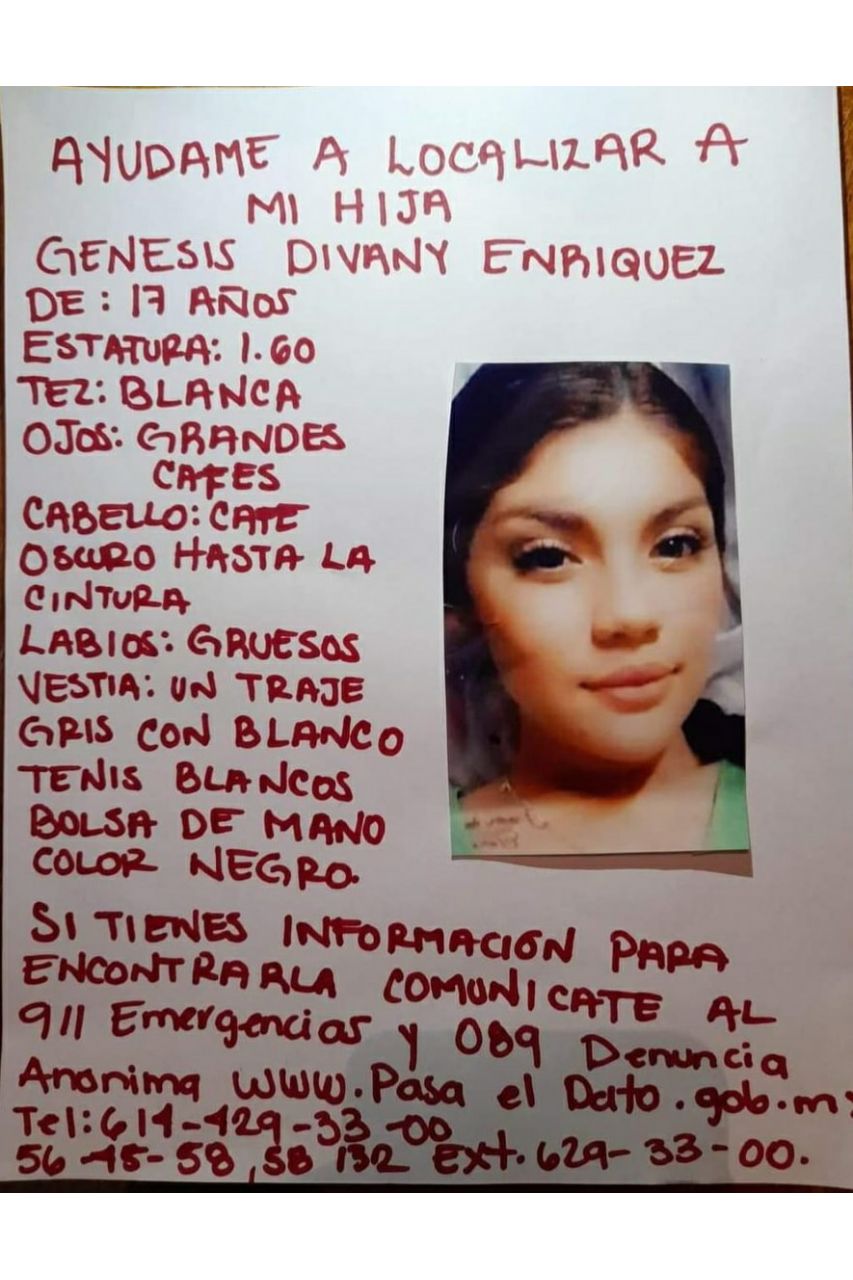 AYUDAME A LOCALIZAR A
MI HIJA
GENESIS DIVANY ENRIQUEZ
DE: 17 AÑOS
ESTATURA: 1.60
TEZ: BLANCA
OJOS: GRANDES
CAFES
CABELLO: CAFE
OSCURO HASTA LA
CINTURA
LABIOS: GRUESOS
VESTIA: UN TRAJE
GRIS CON BLANCO
TENIS BLANCOS
BOLSA DE MANO
COLOR NEGRO.
SI TIENES INFORMACIÓN PARA
ENCONTRARLA COMUNICATE AL
911 Emergencias y 089 Denuncia
Anonima www.Pasa el Dato.gob.m
Tel: 614-429-33-00
56-45-58, 58 132 Ext. 629-33-00.